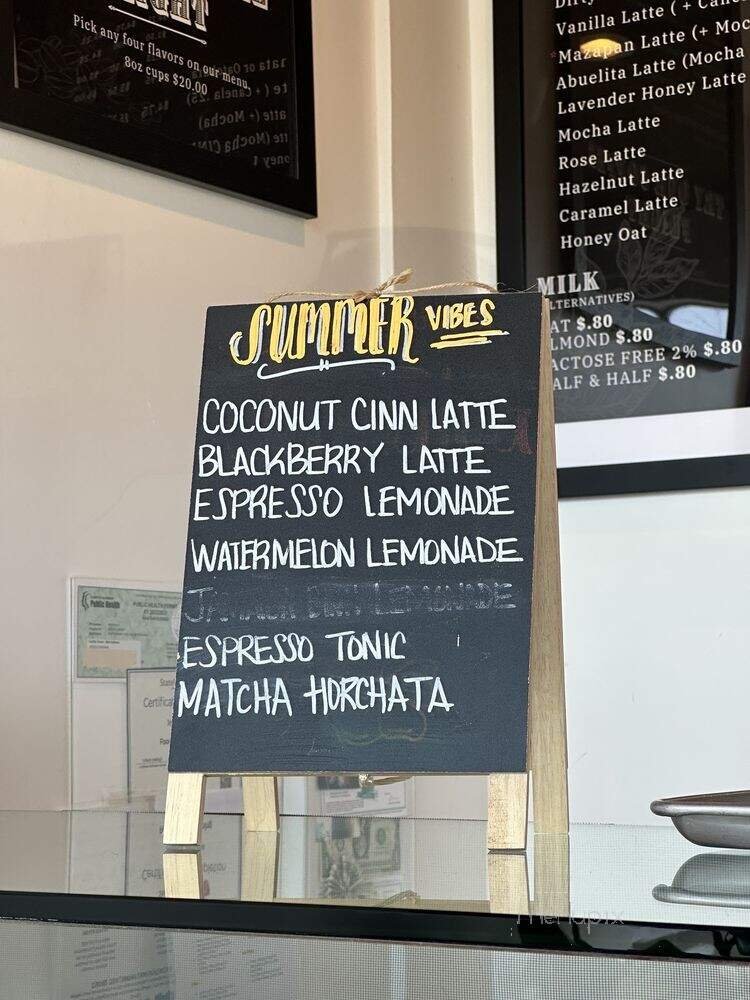 Pick any four flavors on our menu,
8oz cups $20.00
Vanilla Latte ( +
Mazapan Latte (+
Abuelita Latte (Mocha
Lavender Honey Latte
Mocha Latte
Rose Latte
Hazelnut Latte
Caramel Latte
Honey Oat
MILK
LTERNATIVES)
AT $.80
LMOND $.80
ACTOSE FREE 2% $.80
ALF & HALF $.80
SUMMER VIBES
COCONUT CINN LATTE
BLACKBERRY LATTE
ESPRESSO LEMONADE
WATERMELON LEMONADE
LEMONADE
ESPRESSO TONIC
MATCHA HORCHATA
Public Health
menupix